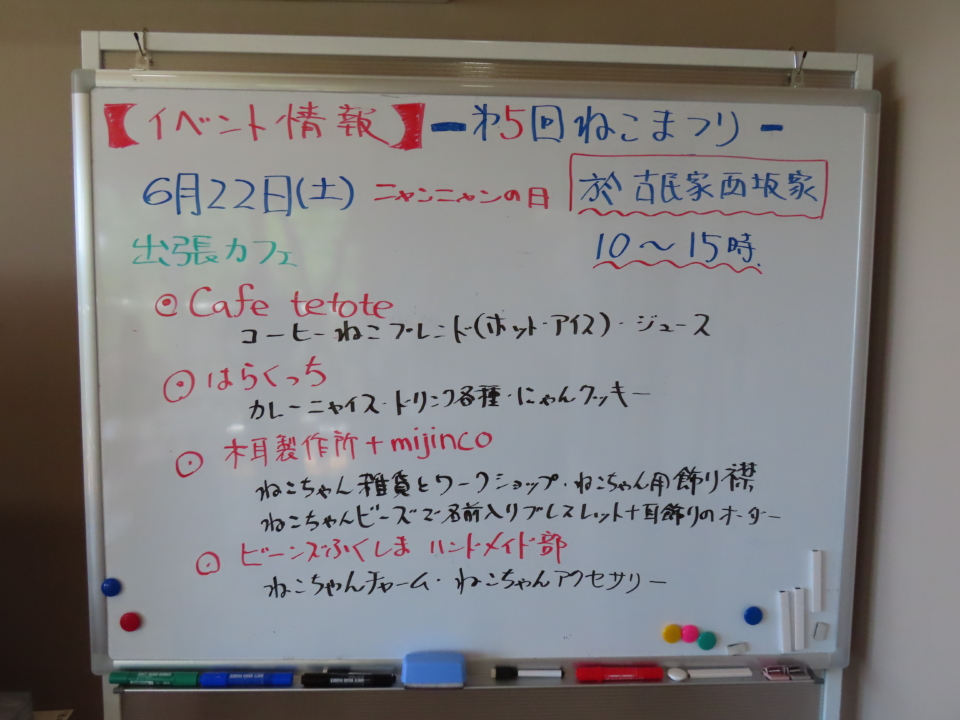 【イベント情報】ー第5回ねこまつりー
6月22日(土) ニャンニャンの日 於 古民家西坂家
出張カフェ 10〜15時
◉ Cafe tetote
コーヒーねこブレンド(ホット・アイス)・ジュース
◉ はらくっち
カレーニャイス・ドリンク各種・にゃんクッキー
◉ 木耳製作所+mijinco
ねこちゃん雑貨とワークショップ・ねこちゃん用飾り襟
ねこちゃんビーズで名前入りブレスレット+耳飾りのオーダー
◉ ビーンズふくしま ハンドメイド部
ねこちゃんチャーム・ねこちゃんアクセサリー